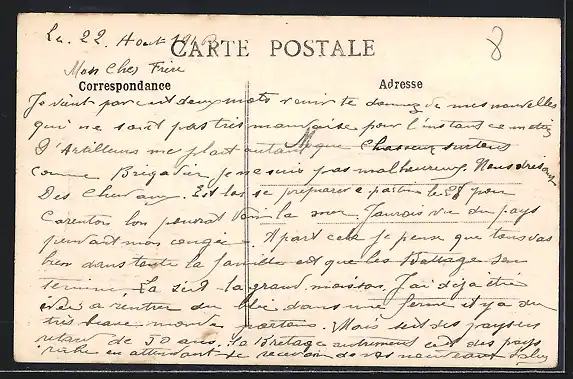 Le 22 Aout
CARTE POSTALE
8
Mon Cher Frere
Correspondance
Adresse
Je vient par ces deux mots venir te donnez de mes nouvelles
qui ne sont pas tres mauvaise pour l'instant ce metiez
D'Artilleurs me plait autant que Chasseur surtout
comme Brigadier je ne suis pas malheureux Nous dresons
Des Chevaux. Est las se preparer a partir le 28 pour
Carentoir bon pourat voir la mer. J'aurais vu du pays
pendant mon congée. Apart cela je pense que tous vas
bien dans toute la famille est que les Battage sont
terminé. La seit la grand maison. J'ai deja etié
a rentrer du blé dans une ferme il y a du
tres beau monde partous. Mais seit des paysens
retard de 50 ans. La Bretagne autrement est des pays
riche en attendant de recevoir de vos nouveaux